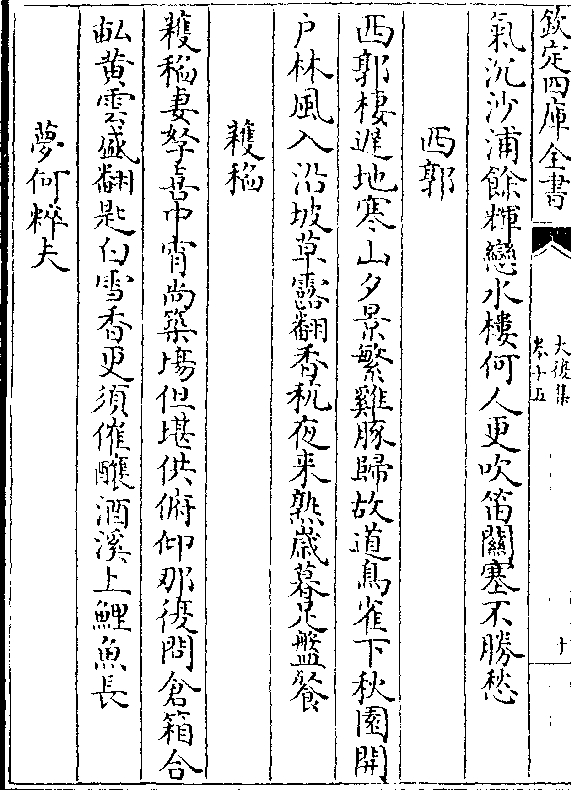 欽定四庫全書
大復集
卷十五
十
氣沉沙浦餘輝戀水樓何人更吹笛關塞不勝愁
西郭
西郭棲遲地寒山夕景繁雞豚歸故道鳥雀下秋園開
户林風入沿坡草露翻香秔夜来熟歲暮足盤餐
穫稻
穫稻妻孥喜中宵尚築場但堪供俯仰那復問倉箱合
畝黄雲盛翻匙白雪香更須催釀酒溪上鯉魚長
夢何粹夫